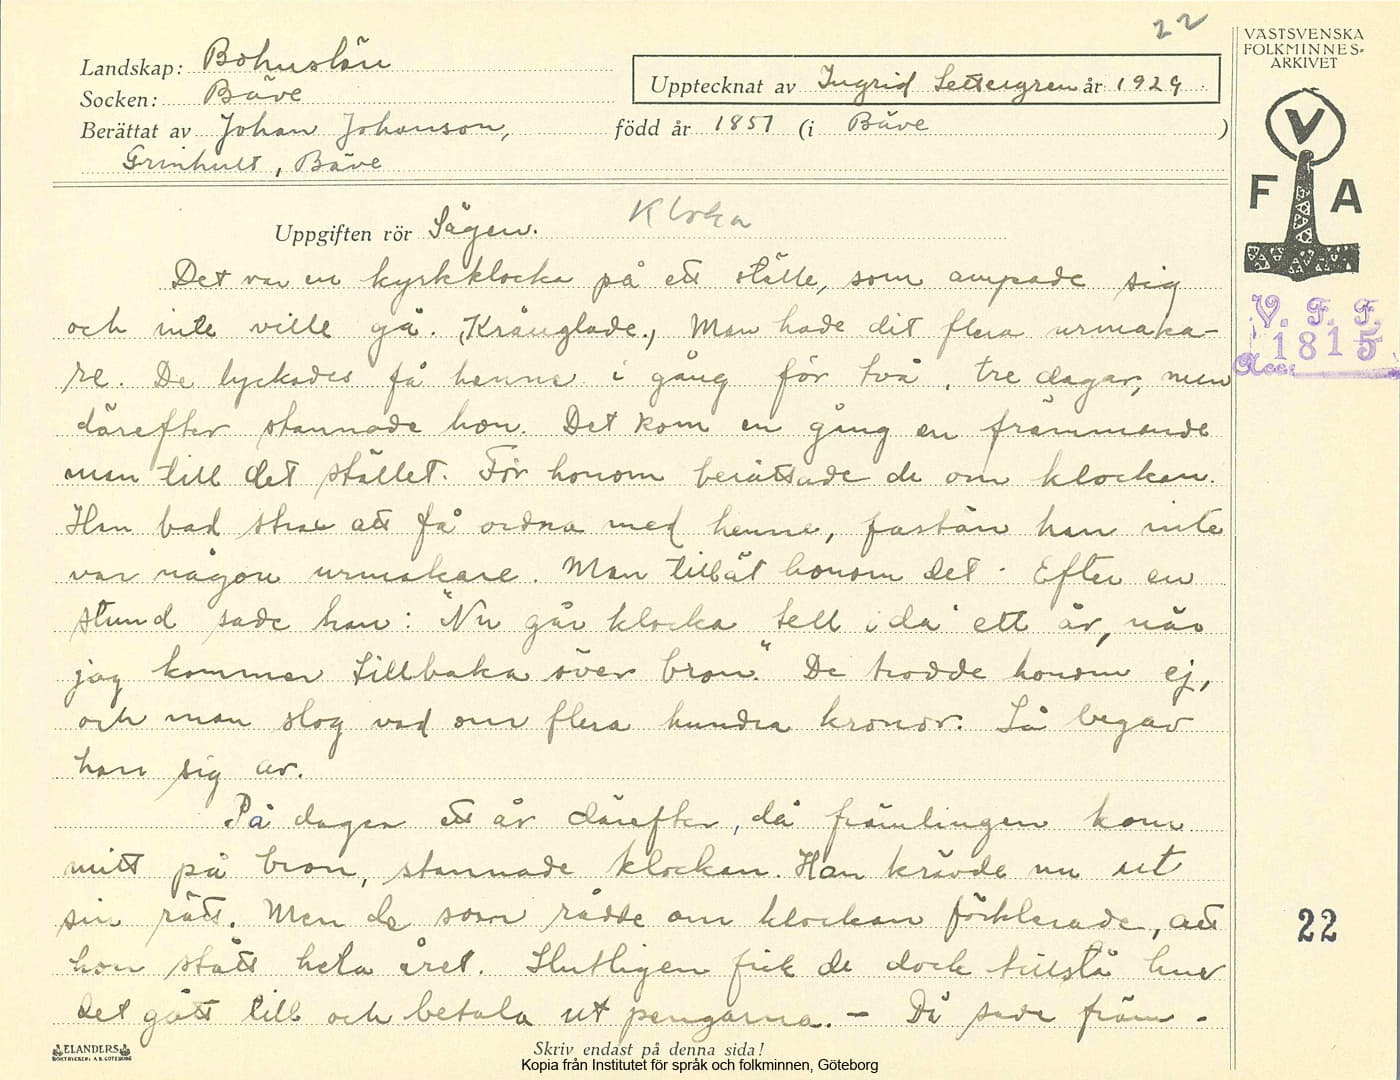 22
Landskap: Bohuslän
Socken: Bäve
Berättat av Johan Johanson,
Grinhult, Bäve
Upptecknat av Ingrid Settergren år 1929
född år 1857 (i Bäve )
VÄSTSVENSKA
FOLKMINNES-
ARKIVET
V
F A
V. F. F.
1815
Acc:
Uppgiften rör Sägen. Klocka
Det var en kyrkklocka på ett ställe, som ampade sig
och inte ville gå. (Krånglade.) Man hade dit flera urmaka-
re. De lyckades få henne i gång för två, tre dagar, men
därefter stannade hon. Det kom en gång en främmande
man till det stället. För honom berättade de om klockan.
Han bad strax att få ordna med henne, fastän han inte
var någon urmakare. Man tillät honom det. Efter en
stund sade han: "Nu går klocka tell ida' ett år, när
jag kommer tillbaka över bron." De trodde honom ej,
och man slog vad om flera hundra kronor. Så begav
han sig av.
På dagen ett år därefter, då främlingen kom
mitt på bron, stannade klockan. Han krävde nu ut
sin rätt. Men de som rådde om klockan förklarade, att
hon stått hela året. Slutligen fick de dock tillstå hur
det gått till och betala ut pengarna. – Då sade främ-
22
ELANDERS
BOKTRYCKERI A.B. GÖTEBORG
Skriv endast på denna sida!
Kopia från Institutet för språk och folkminnen, Göteborg